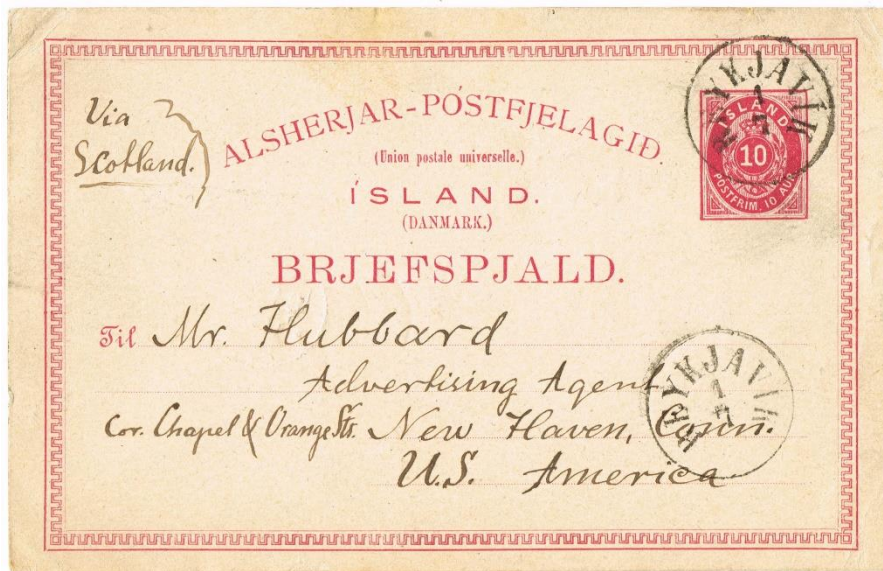 Via
Scotland.
ALSHERJAR-PÓSTFJELAGIÐ.
(Union postale universelle.)
ÍSLAND.
(DANMARK.)
BRJEFSPJALD.
REYKJAVÍK
1
7
ÍSLAND
10
POSTFRIM. 10 AUR.
Til Mr. Hubbard
Advertising Agent
Cor. Chapel & Orange Sts. New Haven, Conn.
U.S. America
REYKJAVÍK
1
7